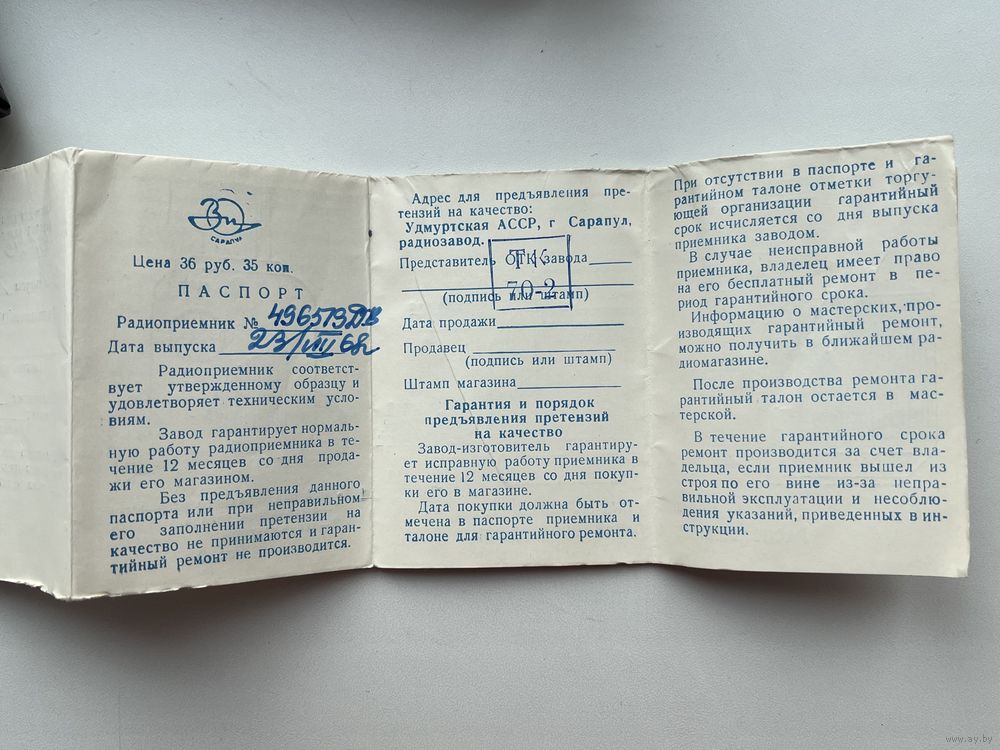 САРАПУЛ
Цена 36 руб. 35 коп.
ПАСПОРТ
Радиоприемник №
Дата выпуска 23/VIII 68
Радиоприемник соответст-
вует утвержденному образцу и
удовлетворяет техническим усло-
виям.
Завод гарантирует нормаль-
ную работу радиоприемника в те-
чение 12 месяцев со дня прода-
жи его магазином.
Без предъявления данного
паспорта или при неправильном
его заполнении претензии на
качество не принимаются и гаран-
тийный ремонт не производится.
Адрес для предъявления пре-
тензий на качество:
Удмуртская АССР, г Сарапул,
радиозавод.
Представитель ОТК завода
ТК
70-2
(подпись или штамп)
Дата продажи
Продавец
(подпись или штамп)
Штамп магазина
Гарантия и порядок
предъявления претензий
на качество
Завод-изготовитель гарантиру-
ет исправную работу приемника в
течение 12 месяцев со дня покуп-
ки его в магазине.
Дата покупки должна быть от-
мечена в паспорте приемника и
талоне для гарантийного ремонта.
При отсутствии в паспорте и га-
рантийном талоне отметки торгу-
ющей организации гарантийный
срок исчисляется со дня выпуска
приемника заводом.
В случае неисправной работы
приемника, владелец имеет право
на его бесплатный ремонт в пе-
риод гарантийного срока.
Информацию о мастерских, про-
изводящих гарантийный ремонт,
можно получить в ближайшем ра-
диомагазине.
После производства ремонта га-
рантийный талон остается в мас-
терской.
В течение гарантийного срока
ремонт производится за счет вла-
дельца, если приемник вышел из
строя по его вине из-за непра-
вильной эксплуатации и несоблю-
дения указаний, приведенных в ин-
струкции.
www.ay.by